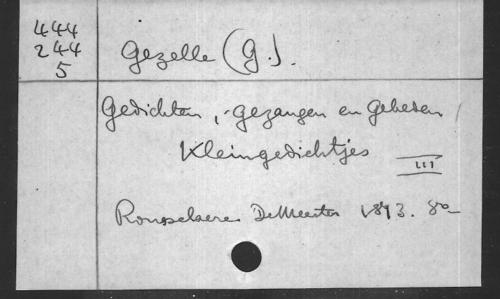 444
244
5
Gezelle (G.).
Gedichten, Gezangen en Gebeden
Kleingedichtjes
III
Rousselaere De Meester 1893. 8o